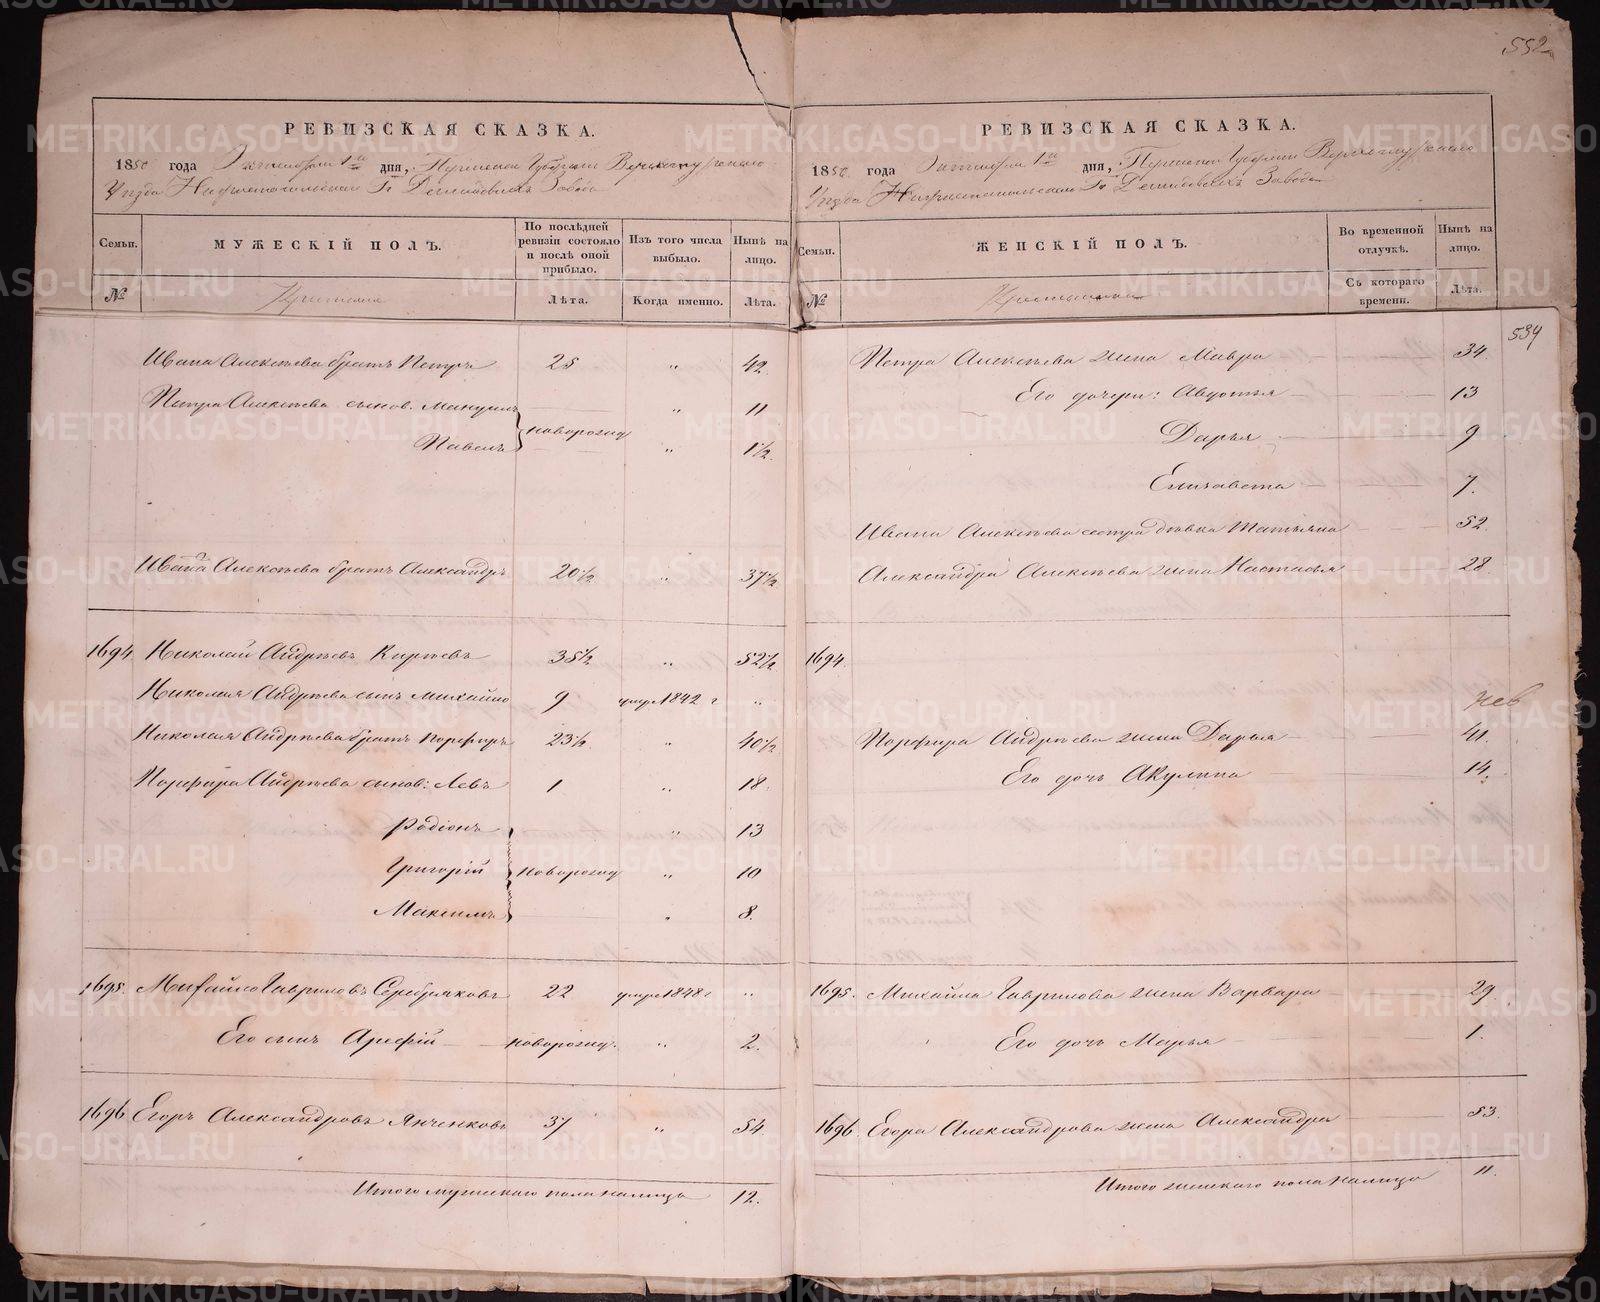 552
РЕВИЗСКАЯ СКАЗКА.
1850 года Октября 1го дня, Пермской Губернии Верхотурскаго
Уѣзда Нижнетагильскаго Гг. Демидовыхъ Завода
Семьи. МУЖЕСКІЙ ПОЛЪ. По послѣдней ревизіи состояло и послѣ оной прибыло. Изъ того числа выбыло. Нынѣ на лицо.
№ Крестьяне Лѣта. Когда именно. Лѣта.
Ивана Алексѣева братъ Петръ 25 " 42.
Петра Алексѣева сынов. " 11
Павелъ новорожд " 1½.
Ивана Алексѣева братъ Александръ 20½ " 37½
1694. Николай Андрѣевъ Кирѣевъ 35½ " 52½
Николая Андрѣева сынъ Михайло 9 умре 1842 г "
Николая Андрѣева братъ Порфиръ 23½ " 40½
Порфира Андрѣева сынов: Левъ 1 " 18.
Родіонъ " 13
Григорій новорожд " 10
Максимъ " 8.
1695. Михайло Гавриловъ Серебряковъ 22 умре 1848 г "
Его сынъ Арефій новорожд. " 2.
1696 Егоръ Александровъ Янченковъ 37 " 54.
Итого мужескаго пола налицо 12.
РЕВИЗСКАЯ СКАЗКА.
1850 года Октября 1го дня, Пермской Губерніи Верхотурскаго
Уѣзда Нижнетагильскаго Гг. Демидовыхъ Завода
Семьи. ЖЕНСКІЙ ПОЛЪ. Во временной отлучкѣ. Нынѣ на лицо.
№ Крестьянки Съ котораго времени. Лѣта.
534
Петра Алексѣева жена Мавра 34.
Его дочери: Авдотья 13
Дарья 9
Елизавета 7.
Ивана Алексѣева сестра дѣвка Татьяна 52.
Александра Алексѣева жена Настасья 28
1694.
Порфира Андрѣева жена Дарья 41.
Его дочь Акулина 14.
1695. Михайла Гаврилова жена Варвара 29
Его дочь Марья 1.
1696. Егора Александрова жена Александра 53.
Итого женскаго пола налицо 11.
METRIKI.GASO-URAL.RU